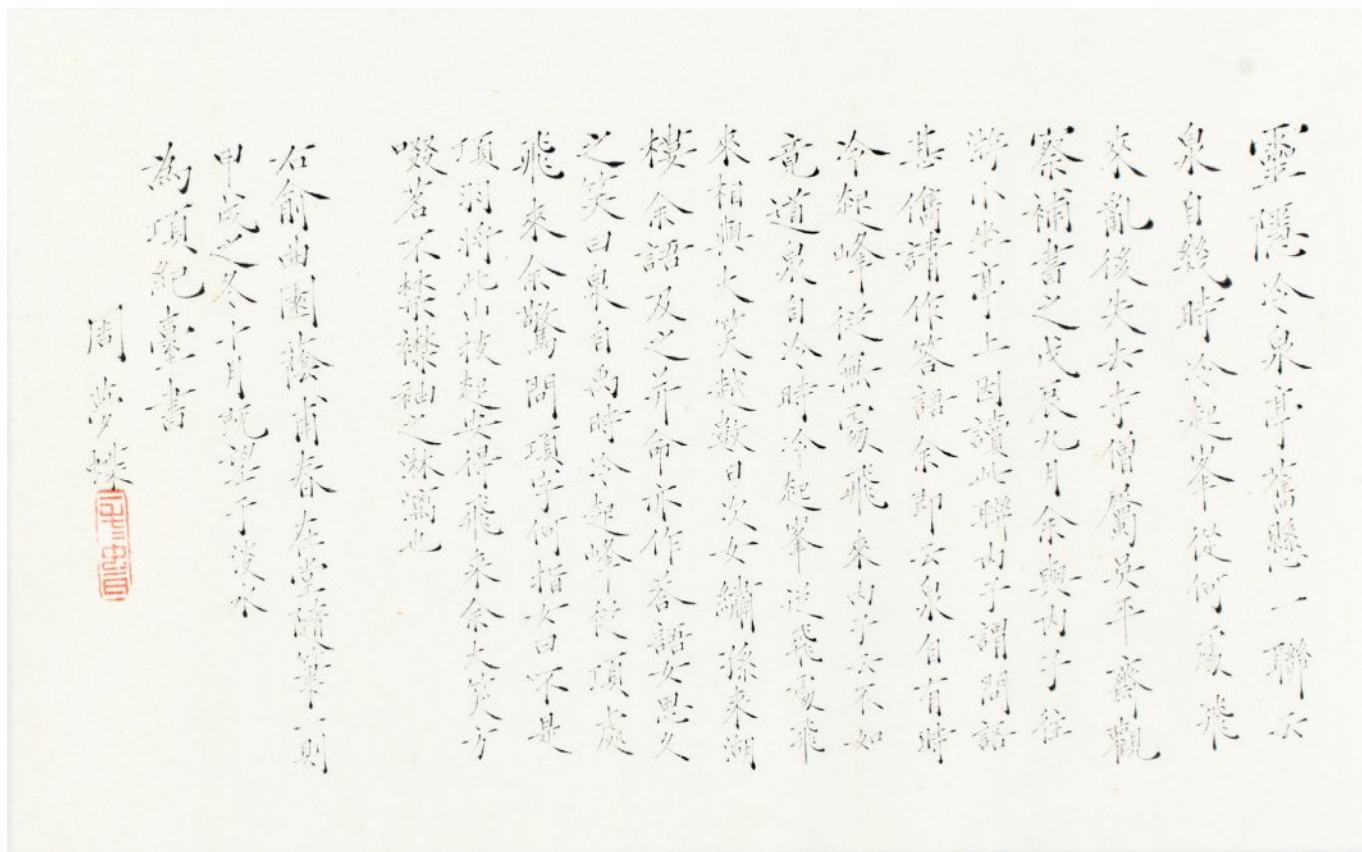 靈隱冷泉亭舊懸一聯云
泉自幾時冷起峯從何處飛
來亂後失去寺僧屬吳平齋觀
察補書之戊辰九月余與內子往
游小坐亭上因讀此聯內子謂問語
甚儁請作答語余即云泉自有時
冷起峰從無處飛來內子云不如
竟道泉自冷時冷起峯從飛處飛
來相與大笑越數日次女繡孫來湖
樓余語及之并命亦作答語女思久
之笑曰泉自禹時冷起峰從項處
飛來余驚問項字何指女曰不是
項羽將此山拔起安得飛來余大笑方
啜茗不禁襟袖之淋漓也
右俞曲園蔭甫春在堂隨筆一則
甲戌之冬十月既望于淡水
為項紀臺書
周夢蝶